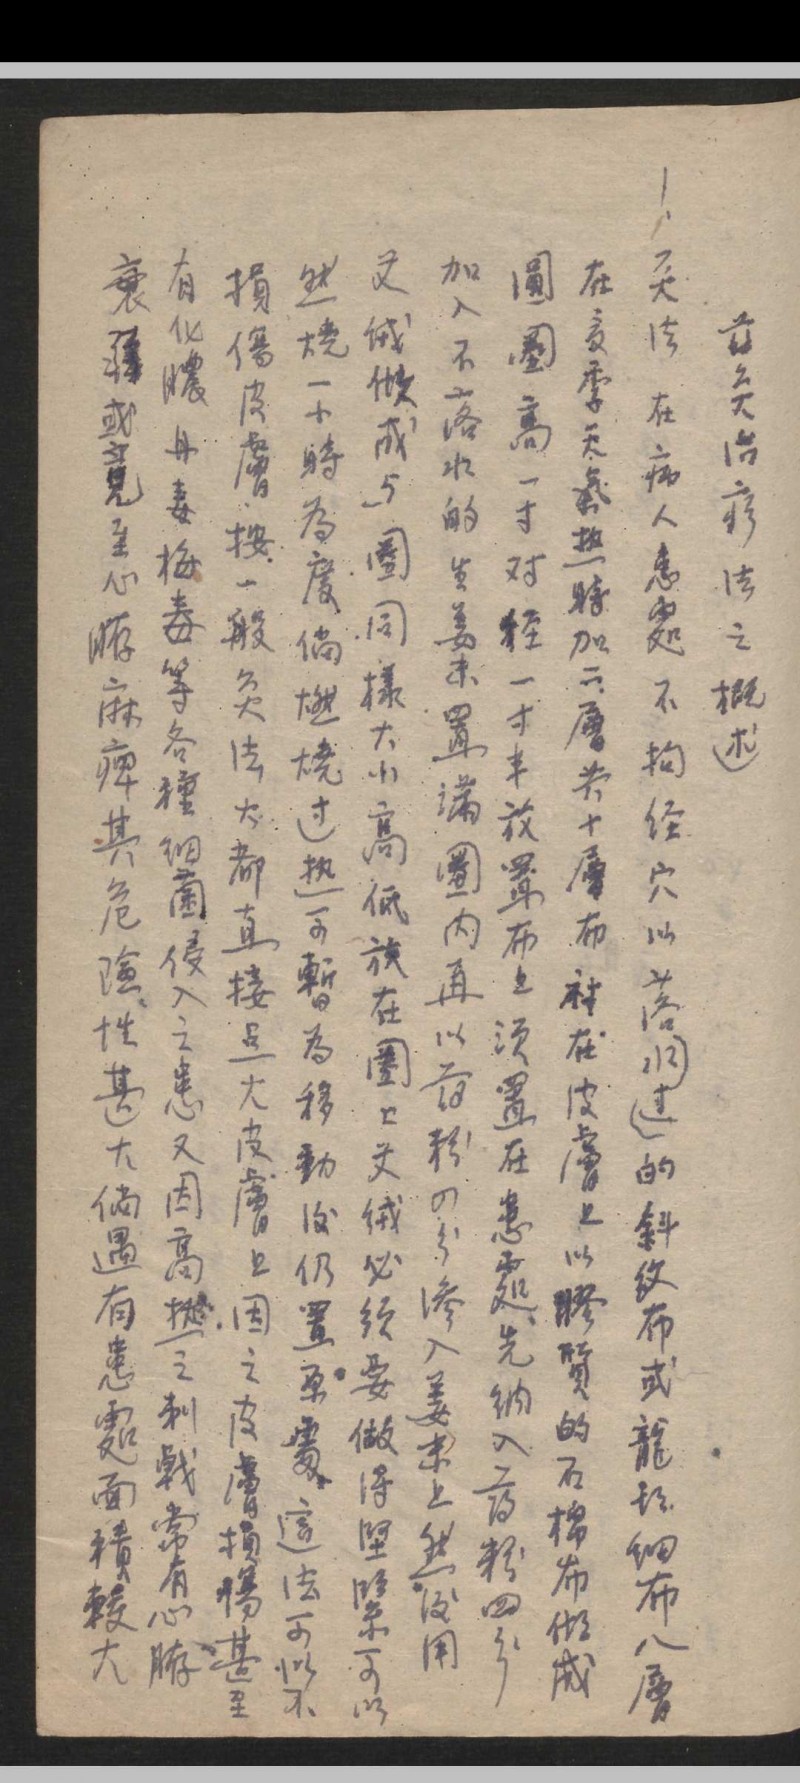 药灸治疗法之概述
1、灸法 在病人患處不拘经穴以落水过的斜纹布或龍头细布八層
在夏季天氣热時加二層共十層布襯在皮膚上以膠質的石棉布做成
圓圈高一寸对徑一寸半放置布上須置在患處、先納入药粉四分
加入不落水的生姜末置满圈内再以药粉四分滲入姜末上然後用
艾绒做成与圈同樣大小高低放在圈上艾绒必须要做得堅緊可以
然燒一小時為度倘燃燒过热可暫為移動後仍置原處、這法可以不
損傷皮膚、按一般灸法大都直接点火皮膚上因之皮膚損傷甚至
有化膿丹毒梅毒等各種细菌侵入之患又因高热之刺戟常有心臟
衰弱或竟至心臟麻痺其危險性甚大倘遇有患處面積較大